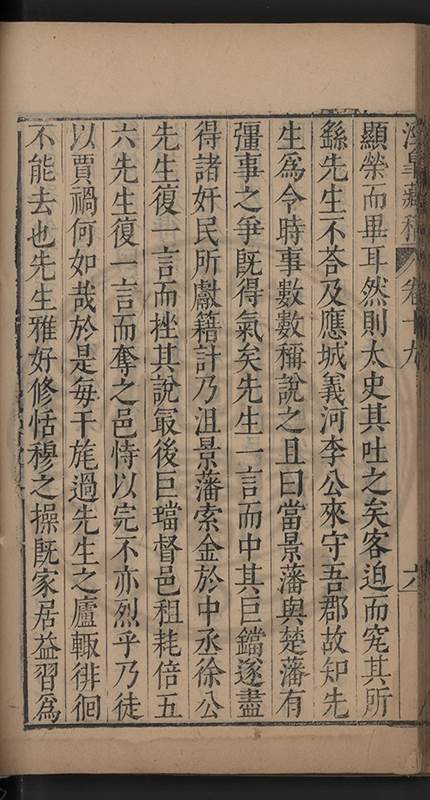 涇皐藏稿 卷十九 六
顯榮而畢耳然則太史其吐之矣客迫而究其所
繇先生不荅及應城義河李公來守吾郡故知先
生爲令時事數數稱說之且曰當景藩與楚藩有
彊事之爭旣得氣矣先生一言而中其巨鐺遂盡
得諸奸民所獻籍計乃沮景藩索金於中丞徐公
先生復一言而挫其說最後巨璫督邑租耗倍五
六先生復一言而奪之邑恃以完不亦烈乎乃徒
以賈禍何如哉於是每干旄過先生之廬輙徘徊
不能去也先生雅好修恬穆之操旣家居益習爲